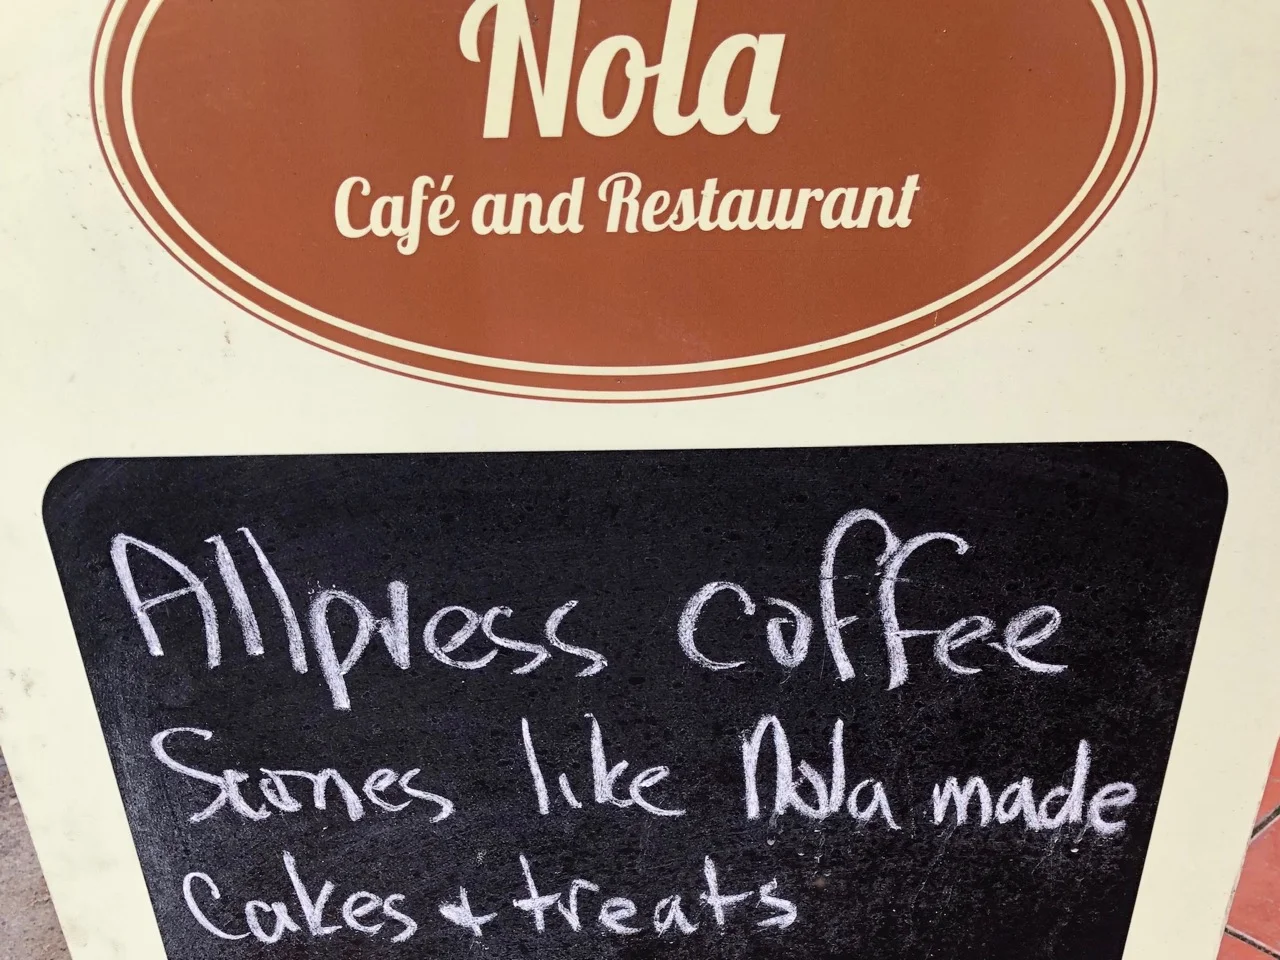 Nola
Café and Restaurant
Allpress coffee
Scones like Nola made
Cakes + treats